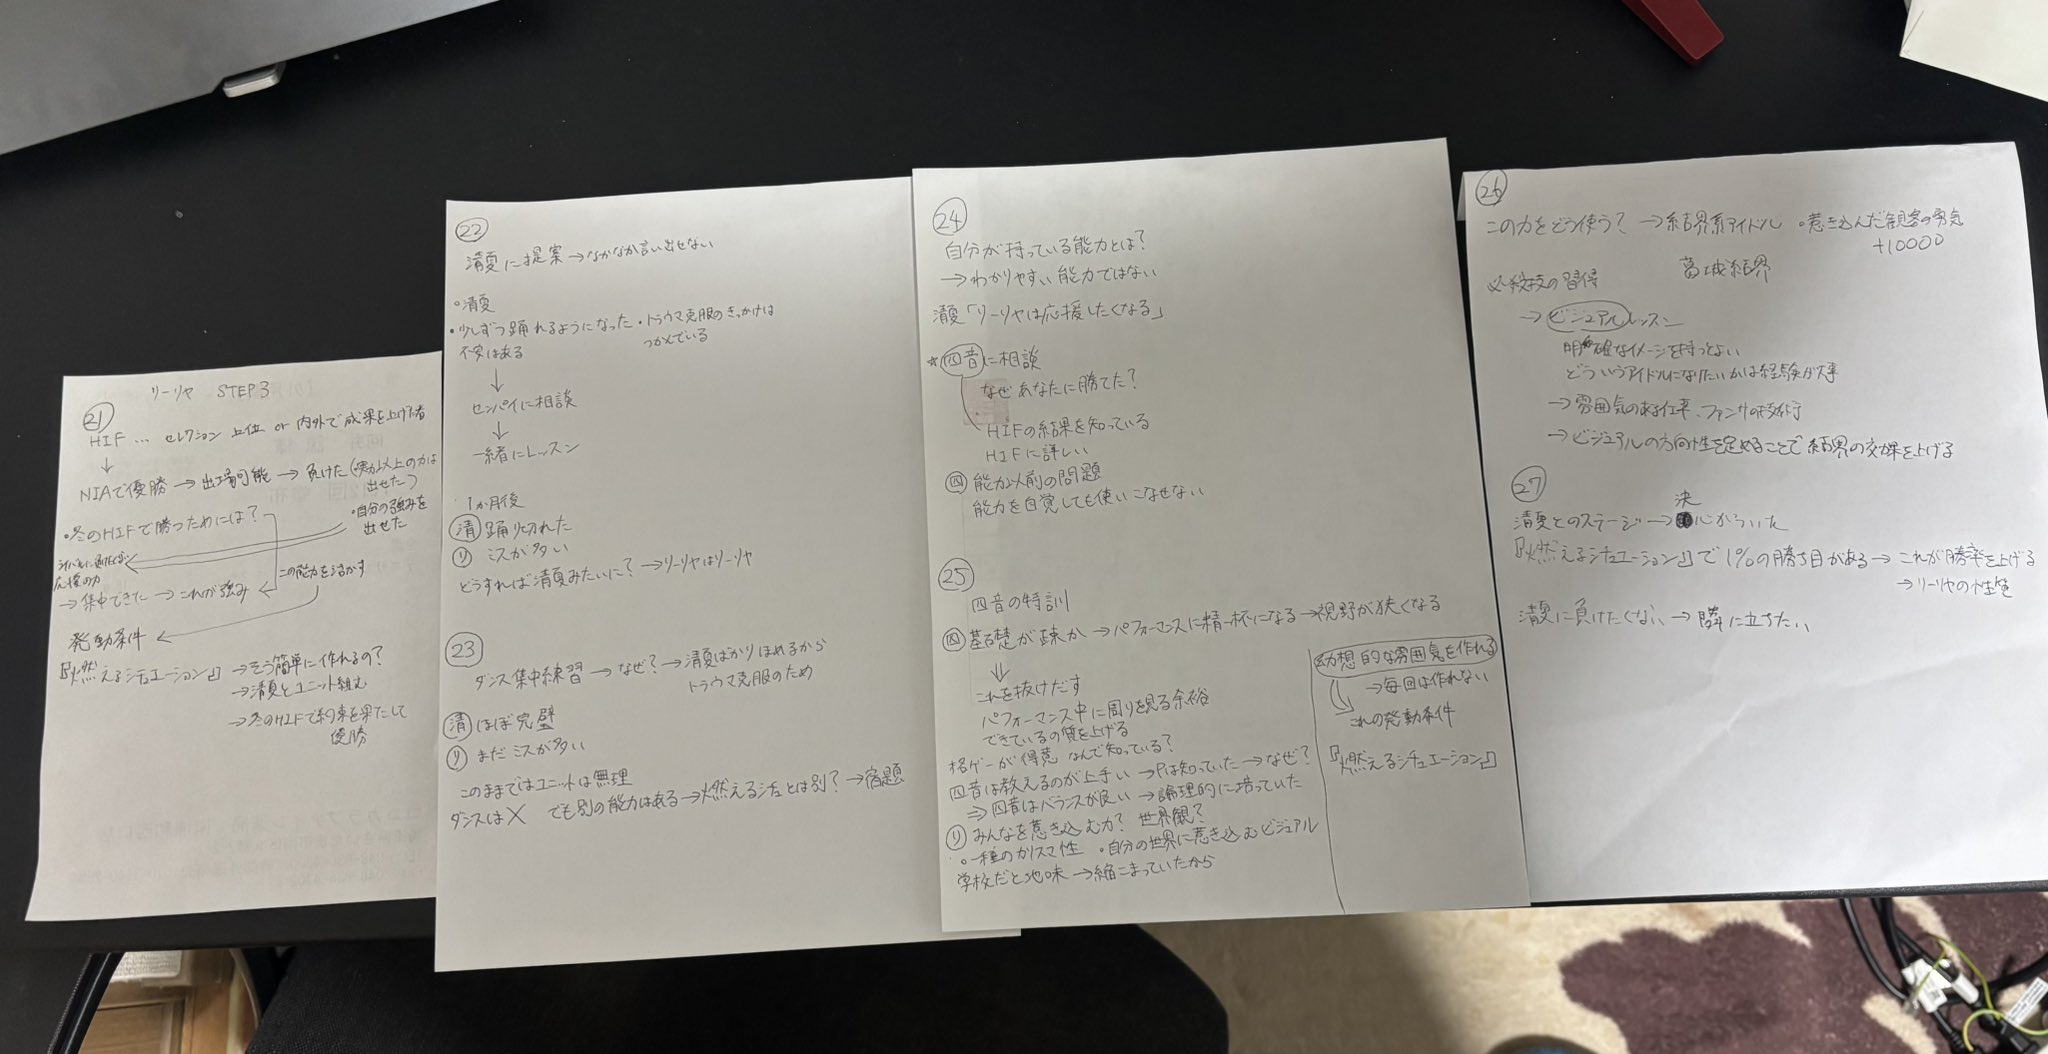 リーリヤ STEP3
㉑
HIF … セレクション上位 or 内外で成果を上げた者
↓
NIAで優勝 → 出場可能 → 負けた(実力以上の力は
出せた)
・自分の強みを
出せた
・冬のHIFで勝つためには?
応援の力
→ 集中できた → これが強み
この能力を活かす
発動条件
『燃えるシチュエーション』 → そう簡単に作れるの?
→ 清夏とユニット組む
→ 冬のHIFで約束を果たして
優勝
㉒
清夏に提案 → なかなか言い出せない
・清夏
・少しずつ踊れるようになった ・トラウマ克服のきっかけは
不安はある つかんでいる
↓
センパイに相談
↓
一緒にレッスン
1か月後
清 踊り切れた
リ ミスが多い
どうすれば清夏みたいに? → リーリヤはリーリヤ
㉓
ダンス集中練習 → なぜ? → 清夏ばかりほめるから
トラウマ克服のため
清 ほぼ完璧
リ まだミスが多い
このままではユニットは無理
ダンスは× でも別の能力はある → 燃えるシチュとは別? → 宿題
㉔
自分が持っている能力とは?
→ わかりやすい能力ではない
清夏「リーリヤは応援したくなる」
☆四音に相談
なぜあなたに勝てた?
HIFの結果を知っている
HIFに詳しい
四 能力以前の問題
能力を自覚しても使いこなせない
㉕
四音の特訓
四 基礎が疎か → パフォーマンスに精一杯になる → 視野が狭くなる
↓
これを抜けだす
パフォーマンス中に周りを見る余裕
できているの質を上げる
格ゲーが得意 なんで知っている?
四音は教えるのが上手い → Pは知っていた → なぜ?
⇒ 四音はバランスが良い → 論理的に培っていた
リ みんなを惹き込む力? 世界観?
・一種のカリスマ性 ・自分の世界に惹き込むビジュアル
学校だと地味 → 縮こまっていたから
幻想的な雰囲気を作れる
→ 毎回は作れない
これの発動条件
『燃えるシチュエーション』
㉖
この力をどう使う? → 結界系アイドル ・惹き込んだ観客の勇気
+10000
葛城結界
必殺技の習得
→ ビジュアルレッスン
明確なイメージを持つとよい
どういうアイドルになりたいかは経験が大事
→ 雰囲気のある仕事、ファンサの技術
→ ビジュアルの方向性を定めることで結界の効果を上げる
㉗
清夏とのステージ → 決心がついた
『燃えるシチュエーション』で1%の勝ち目がある → これが勝率を上げる
→ リーリヤの性質
清夏に負けたくない → 隣に立ちたい